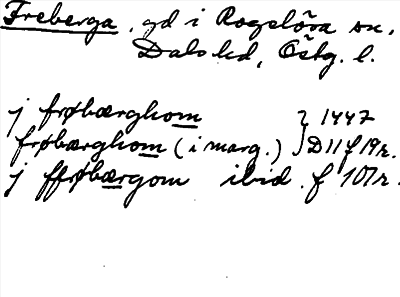 Freberga, gd i Rogslösa sn,
Dals hd, Östg. l.
j frøbærghom } 1447
frøbærghom (i marg.) } D11 f 19r.
j ffrøbærgom ibid. f 107r.